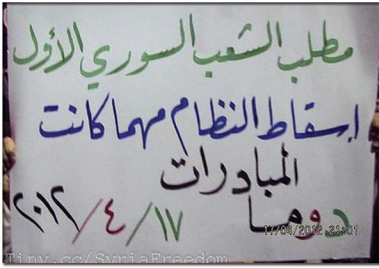 مطلب الشعب السوري الأول
إسقاط النظام مهما كانت
المبادرات
دوما
٢٠١٢/٤/١٧
17/04/2012 21:01
Tiny.cc/SyriaFreedom